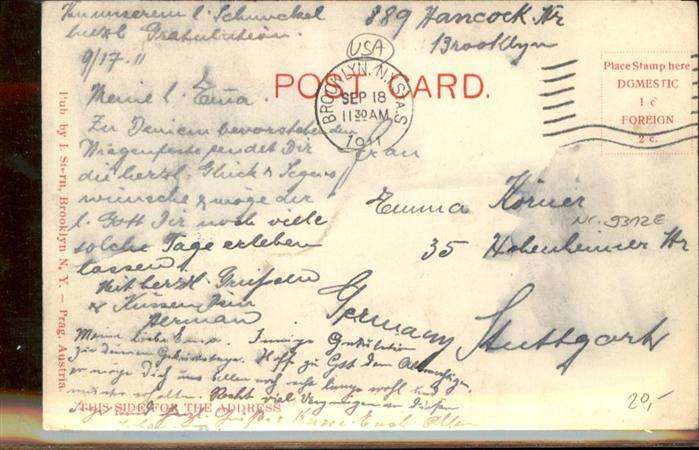 889 Hancock Str
Brooklyn
USA
herzl. Gratulation.
9/17. 11
POST CARD.
BROOKLYN. N.Y. STA. S
SEP 18
11 30 AM
1911
Place Stamp here
DOMESTIC
1 c
FOREIGN
2 c.
Meine l. Ema.
Zu Deinem bevorstehenden
Wiegenfeste sendet Dir
die herzl. Glück & Segens
wünsche & möge der
l. Gott Dir noch viele
solche Tage erleben
lassen!
Mit herzl. Grüßen
& Küssen Dein
Herman
Frau
Emma Körner
Nr. 9312E
35 Hohenheimer Str
Stuttgart
Germany
Meine liebe Ema. Innige Gratulation
zu deinem Geburtstage.
er möge Dich uns allen noch recht lange wohl und
munter erhalten. Recht viel Vergnügen an diesem
THIS SIDE FOR THE ADDRESS
20,-
Pub. by I. Stern, Brooklyn N. Y. — Prag, Austria.